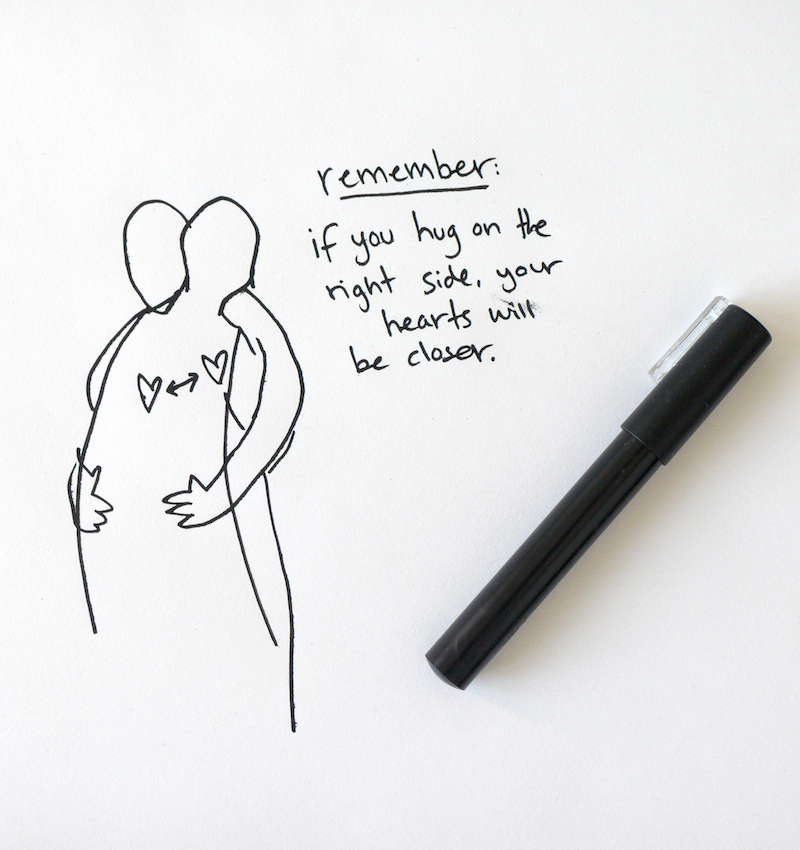 remember:
if you hug on the
right side, your
hearts will
be closer.